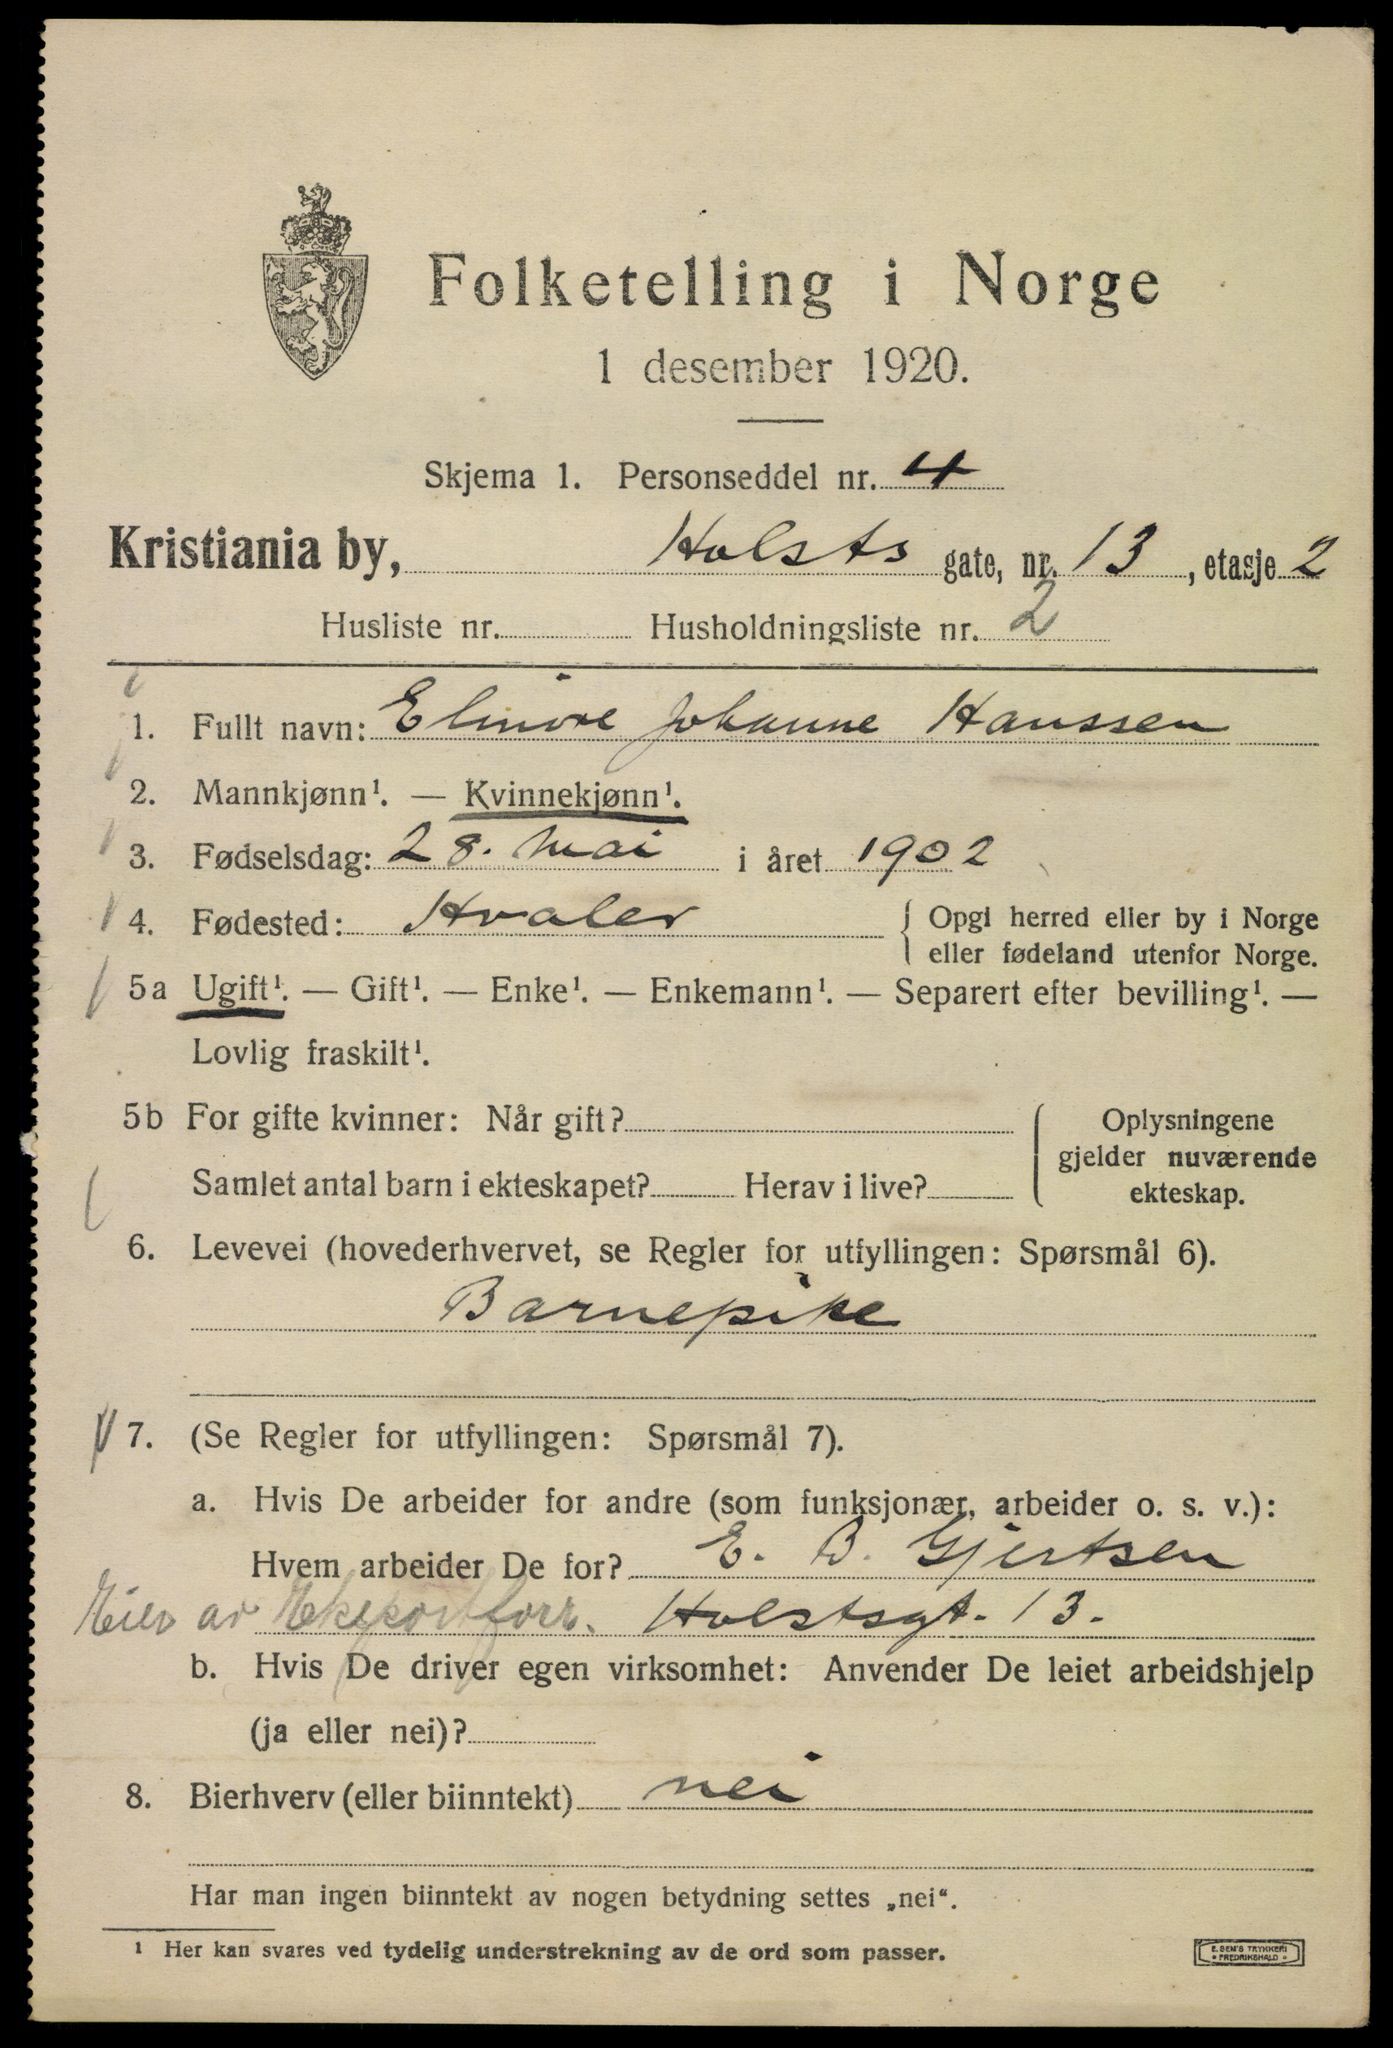 Folketelling i Norge
1 desember 1920.
Skjema 1. Personseddel nr. 4
Kristiania by, Holsts gate, nr. 13, etasje 2
Husliste nr. Husholdningsliste nr. 2
1. Fullt navn: Elmire Johanne Hanssen
2. Mannkjønn¹. — Kvinnekjønn¹.
3. Fødselsdag: 28. mai i året 1902
4. Fødested: Hvaler { Opgi herred eller by i Norge
eller fødeland utenfor Norge.
5a Ugift¹. — Gift¹. — Enke¹. — Enkemann¹. — Separert efter bevilling¹. —
Lovlig fraskilt¹.
5b For gifte kvinner: Når gift?
Samlet antal barn i ekteskapet? Herav i live?
Oplysningene
gjelder nuværende
ekteskap.
6. Levevei (hovederhvervet, se Regler for utfyllingen: Spørsmål 6).
Barnepike
7. (Se Regler for utfyllingen: Spørsmål 7).
a. Hvis De arbeider for andre (som funksjonær, arbeider o. s. v.):
Hvem arbeider De for? E. B. Gjertsen
Eier av Eksportforr. Holstsgt. 13.
b. Hvis De driver egen virksomhet: Anvender De leiet arbeidshjelp
(ja eller nei)?
8. Bierhverv (eller biinntekt) nei
Har man ingen biinntekt av nogen betydning settes „nei“.
¹ Her kan svares ved tydelig understrekning av de ord som passer.
E. SEM'S TRYKKERI
• FREDRIKSHALD •